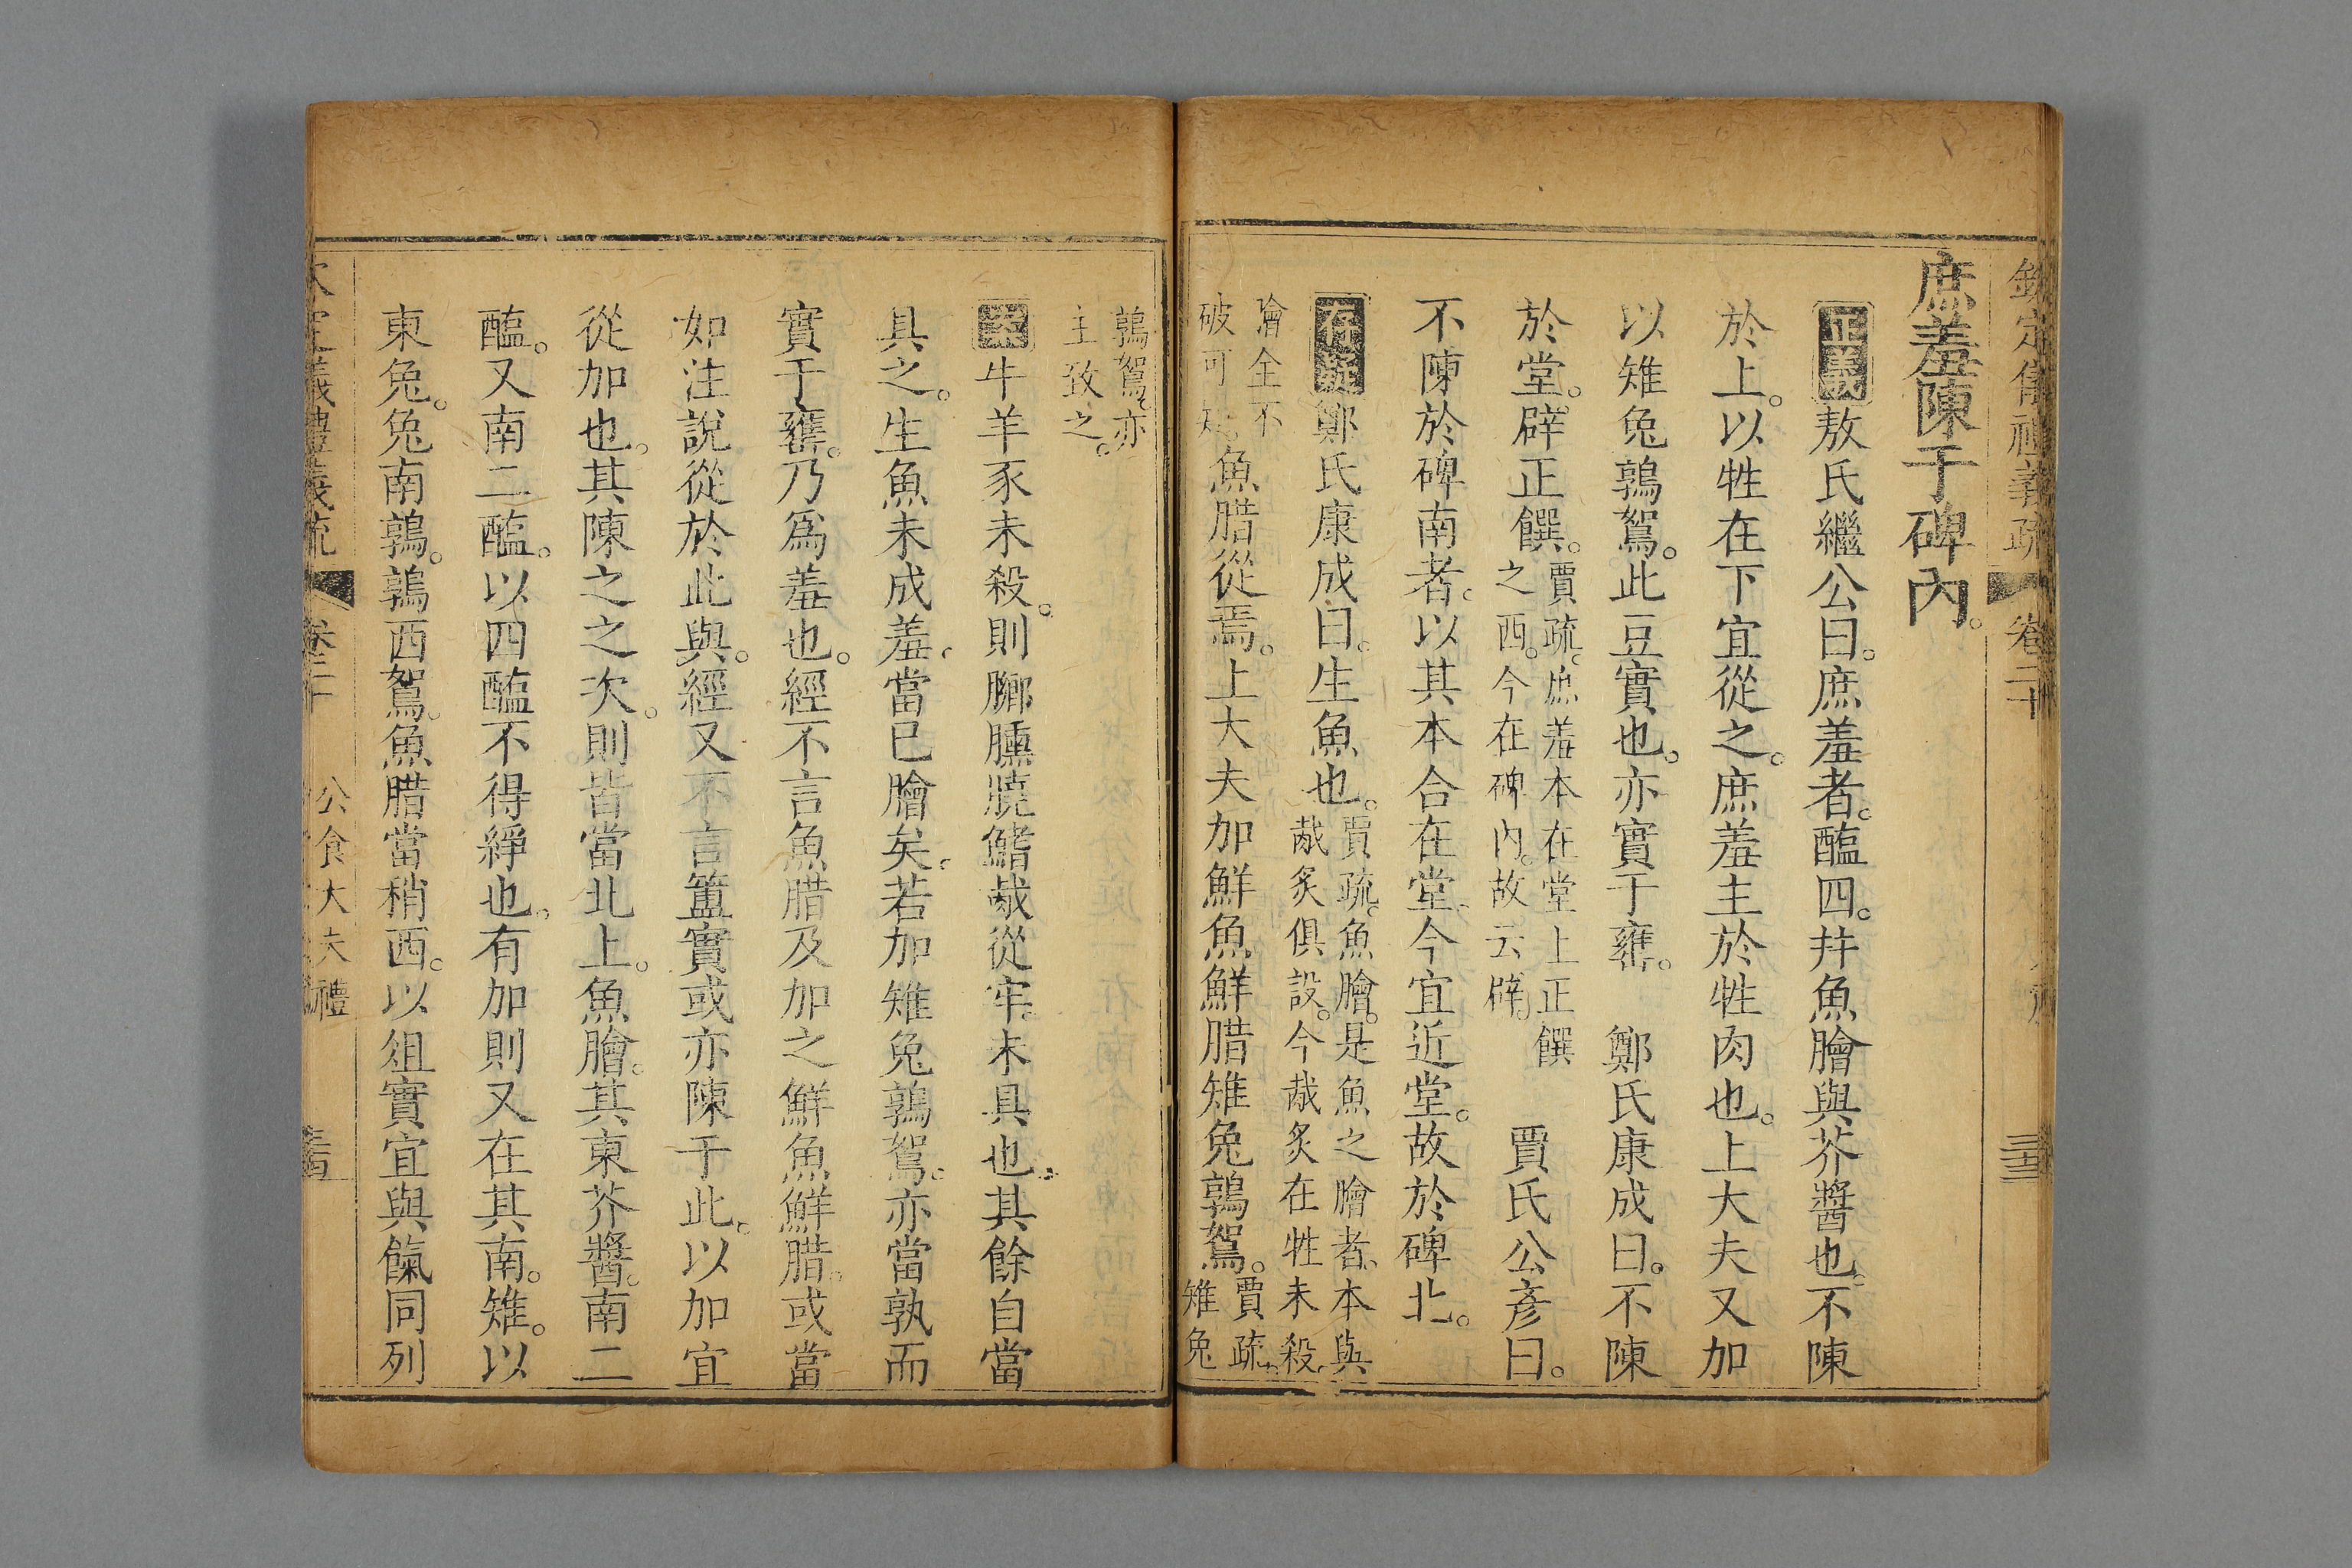 欽定儀禮義疏 卷二十 三三
庶羞陳于碑內。
正義敖氏繼公曰。庶羞者。醢四。幷魚膾與芥醬也。不陳
於上。以牲在下宜從之。庶羞主於牲肉也。上大夫又加
以雉兔鶉鴽。此豆實也。亦實于甕。 鄭氏康成曰。不陳
於堂。辟正饌。賈疏。庶羞本在堂上正饌之西。今在碑內。故云辟。 賈氏公彥曰。
不陳於碑南者。以其本合在堂。今宜近堂。故於碑北。
存疑鄭氏康成曰。生魚也。賈疏。魚膾。是魚之膾者。本與胾炙俱設。今胾炙在牲未殺。
膾全不破可知。魚腊從焉。上大夫加鮮魚鮮腊雉兔鶉鴽。賈疏。雉兔
鶉鴽。亦主致之。
案牛羊豕未殺。則膷臐膮鮨胾從牢。未具也。其餘自當
具之。生魚未成羞。當已膾矣。若加雉兔鶉鴽。亦當孰而
實于甕。乃爲羞也。經不言魚腊及加之鮮魚鮮腊。或當
如注說從於此與。經又不言簠實或亦陳于此。以加宜
從加也。其陳之之次。則皆當北上。魚膾。其東芥醬。南二
醢。又南二醢。以四醢不得綪也。有加則又在其南。雉。以
東兔。兔南鶉。鶉西鴽。魚腊當稍西。以俎實宜與餼同列
欽定儀禮義疏 卷二十 公食大夫禮